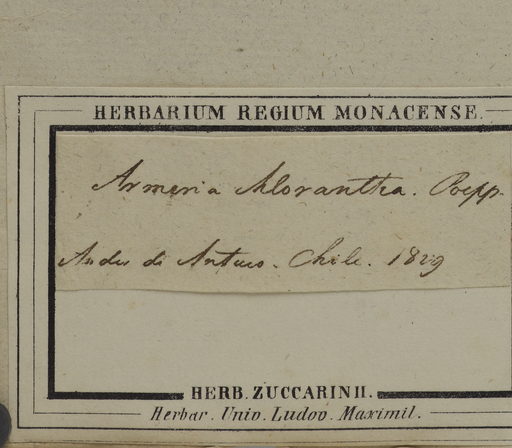 HERBARIUM REGIUM MONACENSE.
Armeria chlorantha. Poepp.
Andes di Antuco. Chile. 1829
HERB. ZUCCARINII.
Herbar. Univ. Ludov. Maximil.